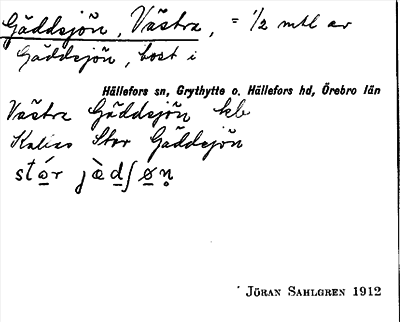 Gäddsjön, Västra, = 1/2 mtl av
Gäddsjön, bost i
Hällefors sn, Grythytte o. Hällefors hd, Örebro län
Västra Gäddsjön kb
Kallas Stor Gäddsjön
JÖRAN SAHLGREN 1912